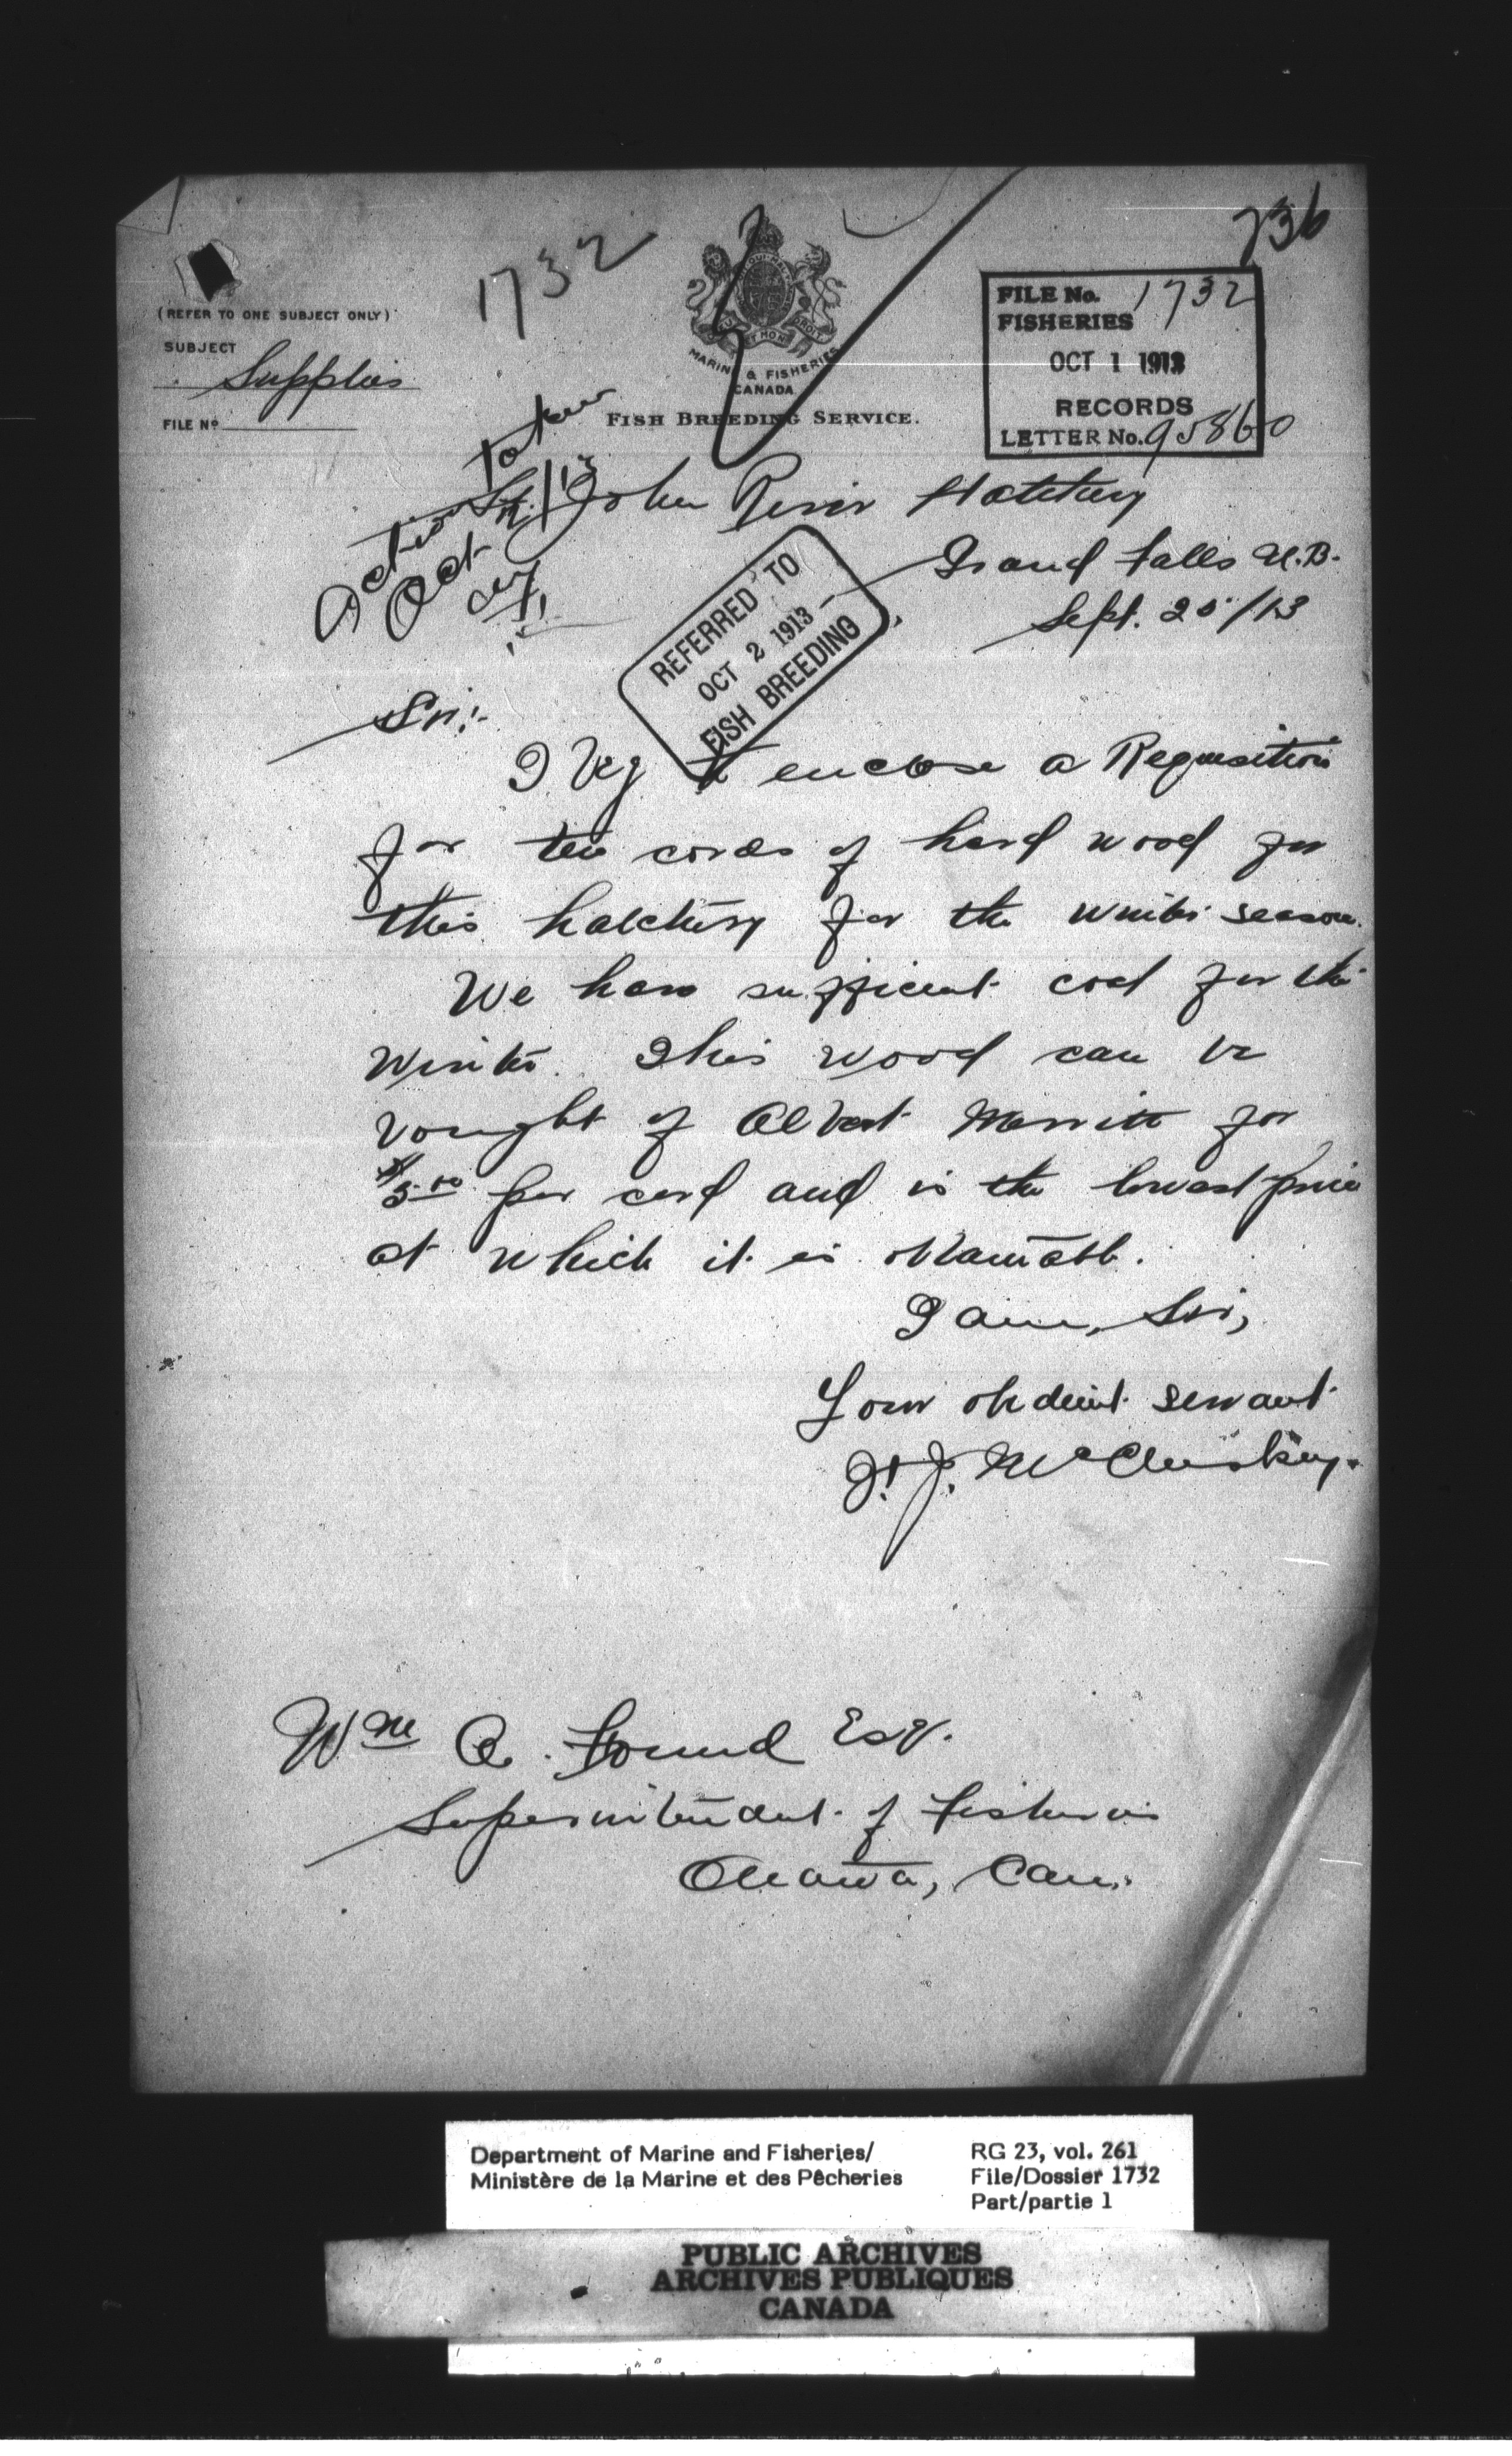 736
1732
(REFER TO ONE SUBJECT ONLY)
SUBJECT
Supplies
FILE No
MARINE & FISHERIES
CANADA
FISH BREEDING SERVICE.
FILE No. 1732
FISHERIES
OCT 1 1913
RECORDS
LETTER No. 95860
Action taken
Oct
St. John River Hatchery
Grand Falls N.B.
Sept. 25/13
REFERRED TO
OCT 2 1913
FISH BREEDING
Sir:-
I beg to enclose a Requisition
for ten cords of hard wood for
this hatchery for the winter season.
We have sufficient coal for the
winter. This wood can be
bought of Albert Merritt for
$5.00 per cord and is the lowest price
at which it is obtainable.
I am, Sir,
Your obedient servant
J. J. McCluskey.
Wm A. Found Esq.
Superintendent of Fisheries
Ottawa, Can.
Department of Marine and Fisheries/
Ministère de la Marine et des Pêcheries
RG 23, vol. 261
File/Dossier 1732
Part/partie 1
PUBLIC ARCHIVES
ARCHIVES PUBLIQUES
CANADA